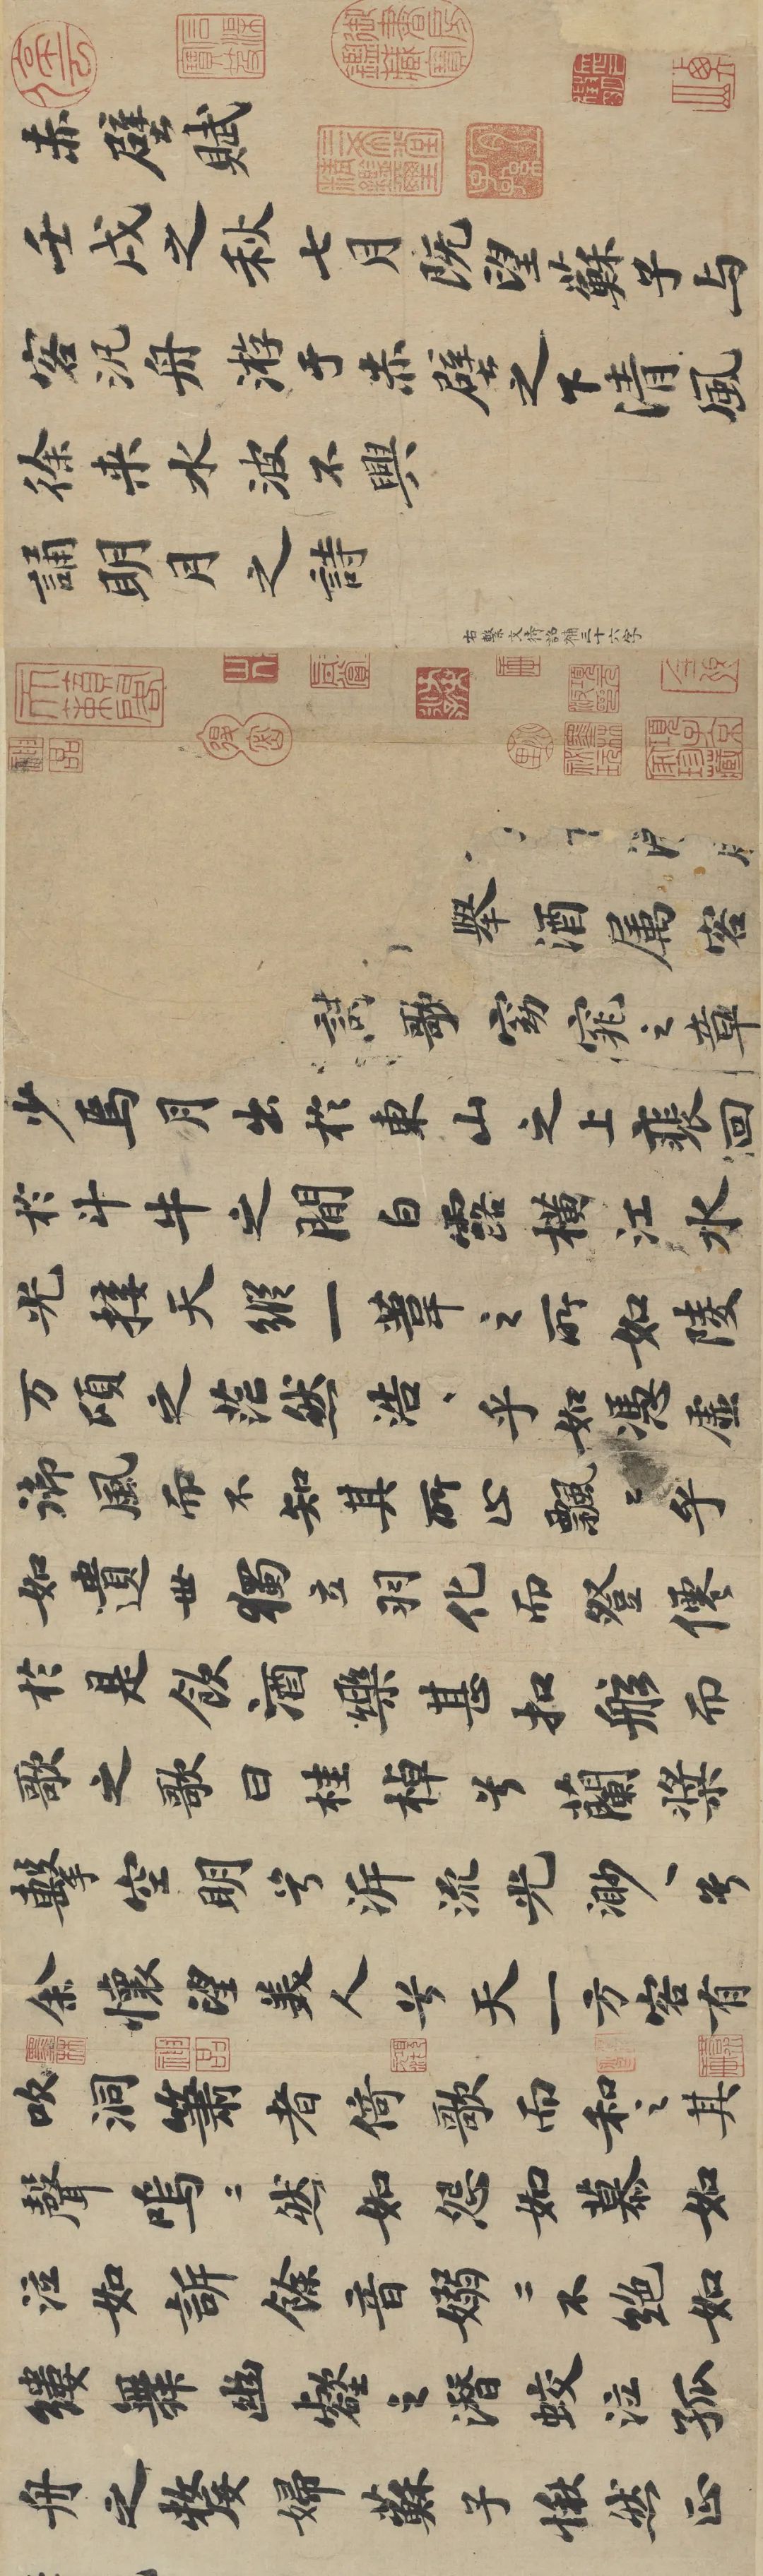 赤壁賦
壬戌之秋七月既望蘇子与
客汎舟游于赤壁之下清風
徐来水波不興
誦明月之詩
右繫文待詔補三十六字
舉酒属客
歌窈窕之章
少焉月出於東山之上裴回
於斗牛之間白露横江水
光接天縱一葦之所如陵
万頃之茫然浩、乎如馮虚
御風而不知其所止飄〻乎
如遺世獨立羽化而登僊
於是飲酒樂甚扣舷而
歌之歌曰桂棹兮蘭槳
擊空明兮泝流光渺、兮
余懷望美人兮天一方客有
吹洞簫者倚歌而和之其
聲嗚〻然如怨如慕如
泣如訴餘音嫋〻不絶如
縷舞幽壑之潛蛟泣孤
舟之嫠婦蘇子愀然正